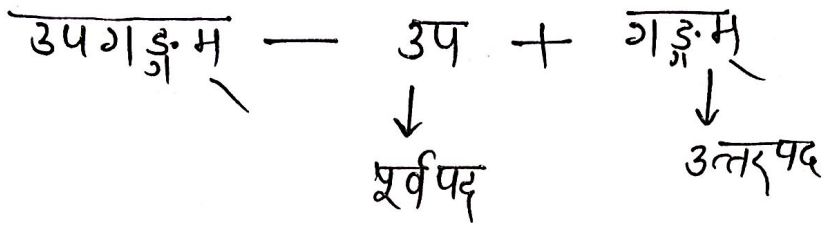 उपगङ्गम् — उप + गङ्गम्
↓ ↓
पूर्वपद उत्तरपद